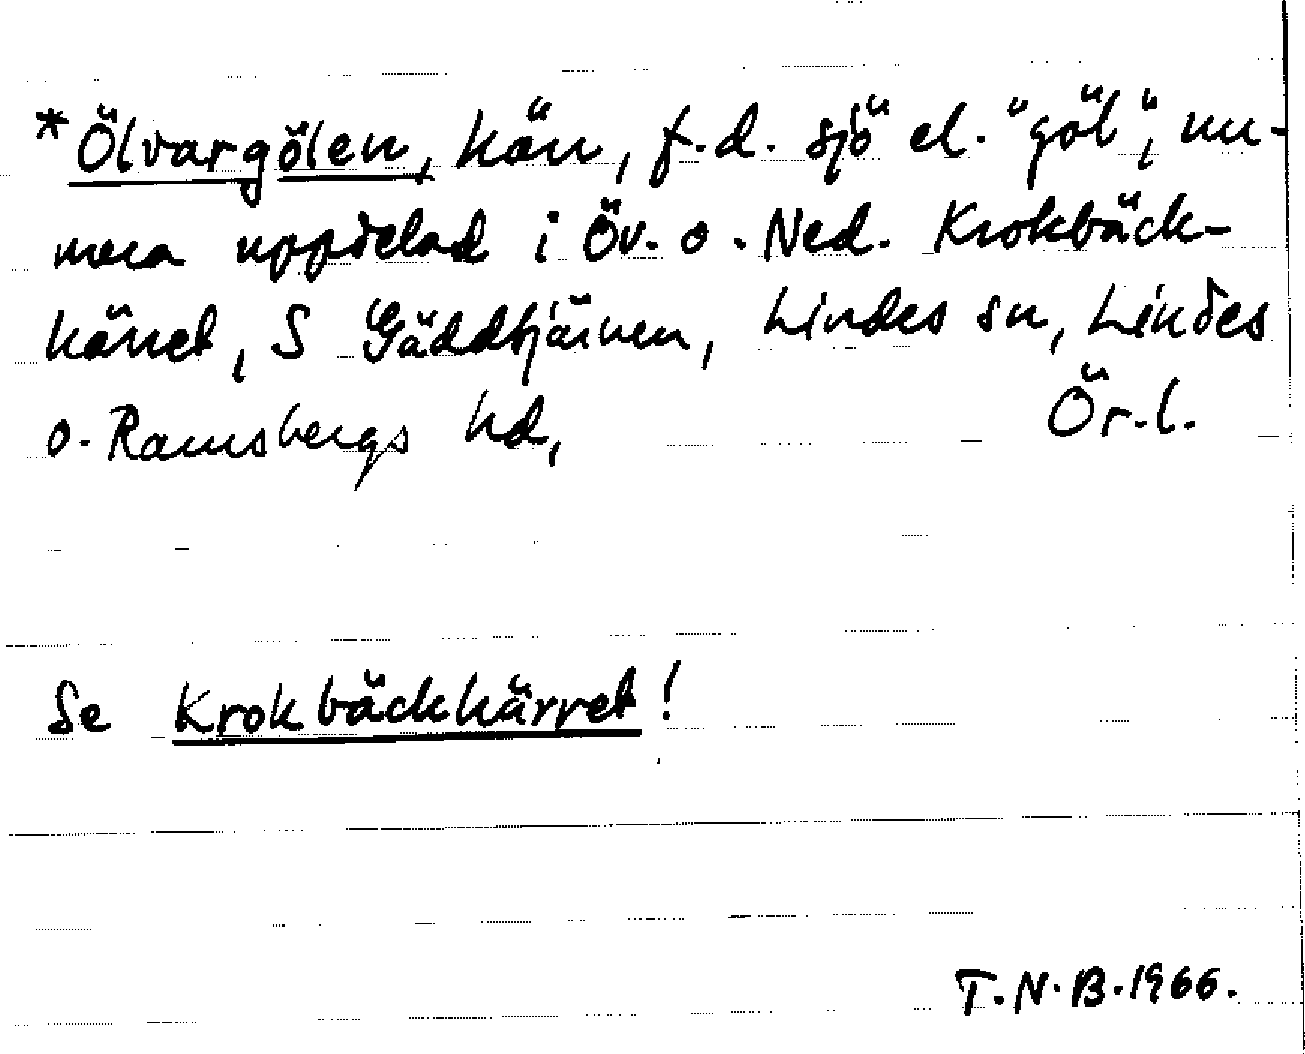 *Ölvargölen, kärr, f.d. sjö el. "göl", nu-
mera uppdelad i Öv. o. Ned. Krokbäck-
kärret, S Gäddtjärnen, Lindes sn, Lindes
o. Ramsbergs hd, Ör.l.
Se Krokbäckkärret!
T.N.B.1966.